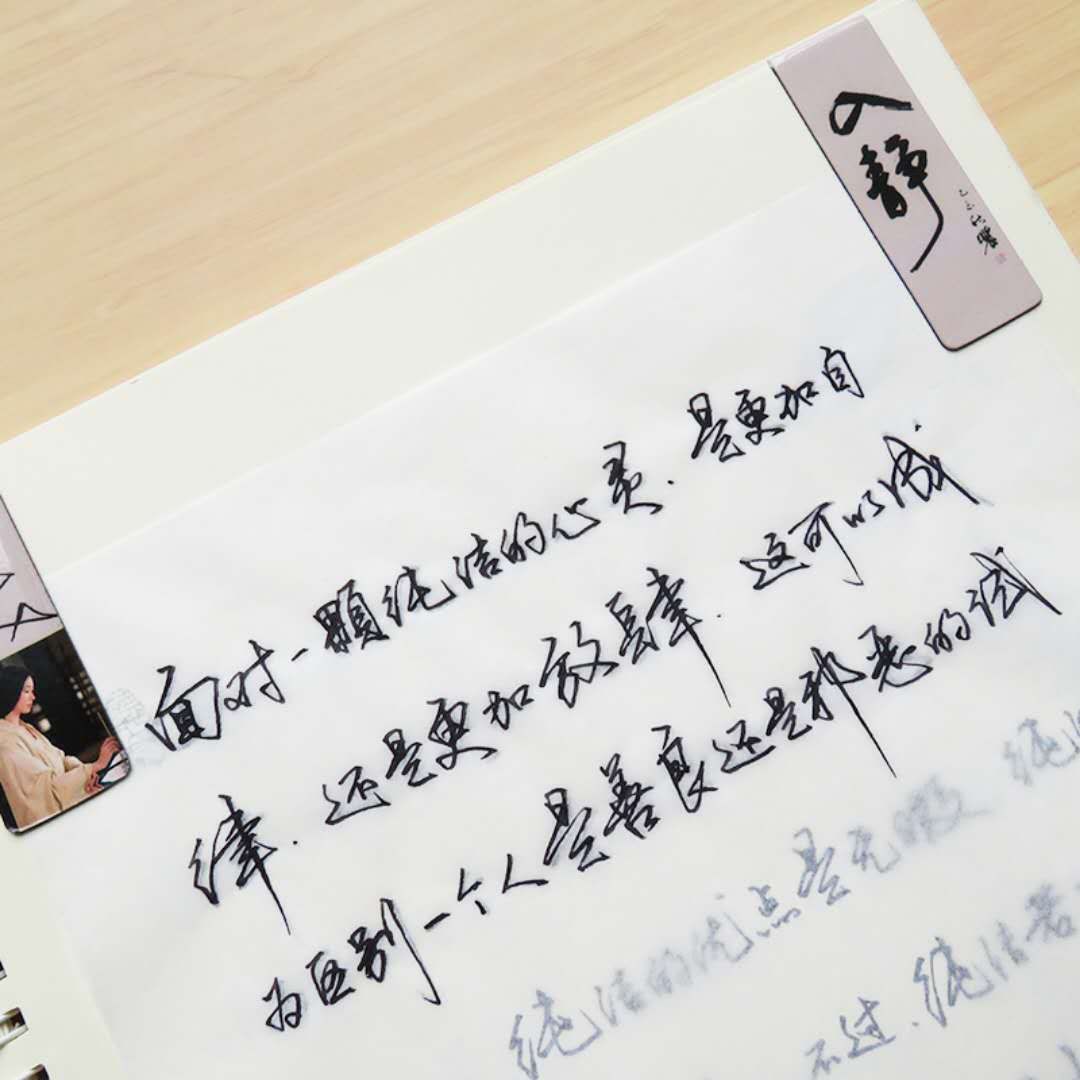 入静
面对一颗纯洁的心灵.是更加自
律.还是更加放肆.这可以成
为区别一个人是善良还是邪恶的试
纯洁的优点是无暇 纯洁
不过.纯洁若